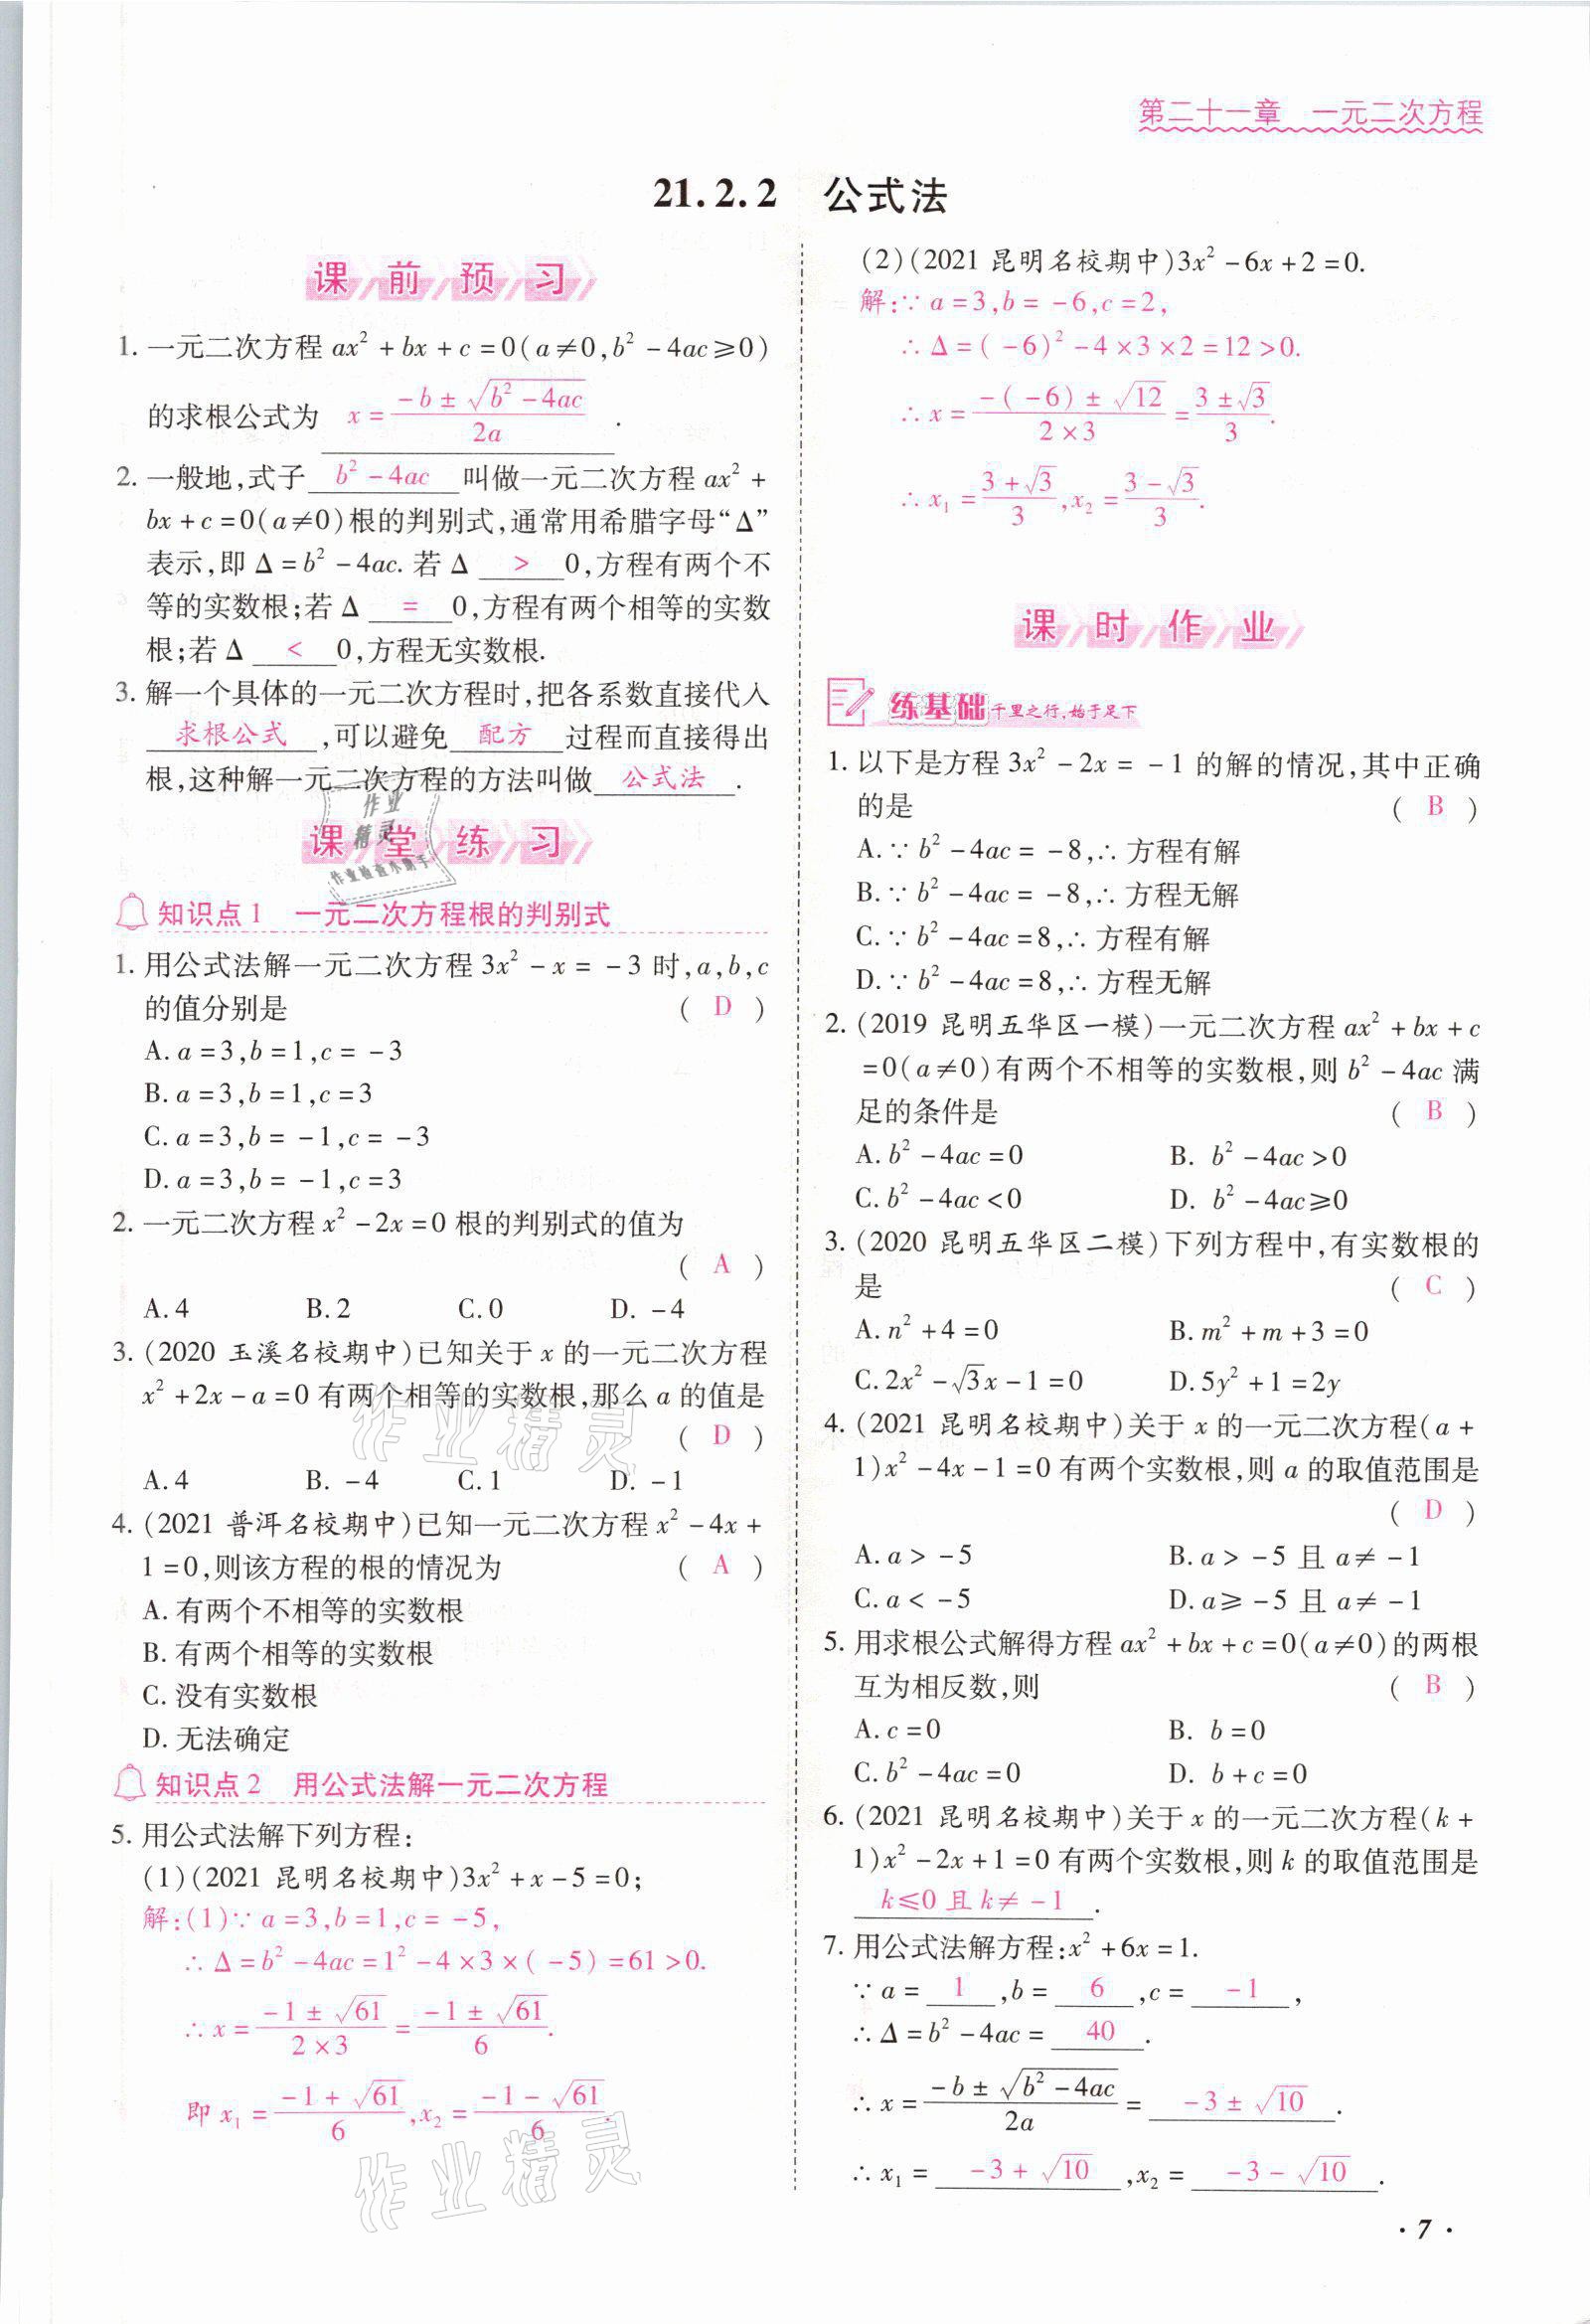 第二十一章　一元二次方程
21.2.2　公式法
课前预习
1. 一元二次方程 ax²+bx+c=0(a≠0,b²-4ac≥0)
的求根公式为 x=(-b±√(b²-4ac))/(2a).
2. 一般地,式子 b²-4ac 叫做一元二次方程 ax²+
bx+c=0(a≠0)根的判别式,通常用希腊字母“Δ”
表示,即 Δ=b²-4ac. 若 Δ > 0,方程有两个不
等的实数根;若 Δ = 0,方程有两个相等的实数
根;若 Δ < 0,方程无实数根.
3. 解一个具体的一元二次方程时,把各系数直接代入
求根公式,可以避免 配方 过程而直接得出
根,这种解一元二次方程的方法叫做 公式法.
课堂练习
知识点1　一元二次方程根的判别式
1. 用公式法解一元二次方程 3x²-x=-3 时,a,b,c
的值分别是 ( D )
A. a=3,b=1,c=-3
B. a=3,b=1,c=3
C. a=3,b=-1,c=-3
D. a=3,b=-1,c=3
2. 一元二次方程 x²-2x=0 根的判别式的值为
( A )
A. 4 B. 2 C. 0 D. -4
3. (2020 玉溪名校期中)已知关于 x 的一元二次方程
x²+2x-a=0 有两个相等的实数根,那么 a 的值是
( D )
A. 4 B. -4 C. 1 D. -1
4. (2021 普洱名校期中)已知一元二次方程 x²-4x+
1=0,则该方程的根的情况为 ( A )
A. 有两个不相等的实数根
B. 有两个相等的实数根
C. 没有实数根
D. 无法确定
知识点2　用公式法解一元二次方程
5. 用公式法解下列方程:
(1)(2021 昆明名校期中)3x²+x-5=0;
解:(1)∵ a=3,b=1,c=-5,
∴ Δ=b²-4ac=1²-4×3×(-5)=61>0.
∴ x=(-1±√61)/(2×3)=(-1±√61)/6.
即 x₁=(-1+√61)/6,x₂=(-1-√61)/6.
(2)(2021 昆明名校期中)3x²-6x+2=0.
解:∵ a=3,b=-6,c=2,
∴ Δ=(-6)²-4×3×2=12>0.
∴ x=(-(-6)±√12)/(2×3)=(3±√3)/3.
∴ x₁=(3+√3)/3,x₂=(3-√3)/3.
课时作业
练基础 千里之行,始于足下
1. 以下是方程 3x²-2x=-1 的解的情况,其中正确
的是 ( B )
A. ∵ b²-4ac=-8,∴ 方程有解
B. ∵ b²-4ac=-8,∴ 方程无解
C. ∵ b²-4ac=8,∴ 方程有解
D. ∵ b²-4ac=8,∴ 方程无解
2. (2019 昆明五华区一模)一元二次方程 ax²+bx+c
=0(a≠0)有两个不相等的实数根,则 b²-4ac 满
足的条件是 ( B )
A. b²-4ac=0 B. b²-4ac>0
C. b²-4ac<0 D. b²-4ac≥0
3. (2020 昆明五华区二模)下列方程中,有实数根的
是 ( C )
A. n²+4=0 B. m²+m+3=0
C. 2x²-√3x-1=0 D. 5y²+1=2y
4. (2021 昆明名校期中)关于 x 的一元二次方程(a+
1)x²-4x-1=0 有两个实数根,则 a 的取值范围是
( D )
A. a>-5 B. a>-5 且 a≠-1
C. a<-5 D. a≥-5 且 a≠-1
5. 用求根公式解得方程 ax²+bx+c=0(a≠0)的两根
互为相反数,则 ( B )
A. c=0 B. b=0
C. b²-4ac=0 D. b+c=0
6. (2021 昆明名校期中)关于 x 的一元二次方程(k+
1)x²-2x+1=0 有两个实数根,则 k 的取值范围是
k≤0 且 k≠-1.
7. 用公式法解方程:x²+6x=1.
∵ a= 1 ,b= 6 ,c= -1 ,
∴ Δ=b²-4ac= 40 .
∴ x=(-b±√(b²-4ac))/(2a)= -3±√10 .
∴ x₁= -3+√10 ,x₂= -3-√10 .
· 7 ·
作业精灵
作业检查小助手
作业精灵
作业精灵